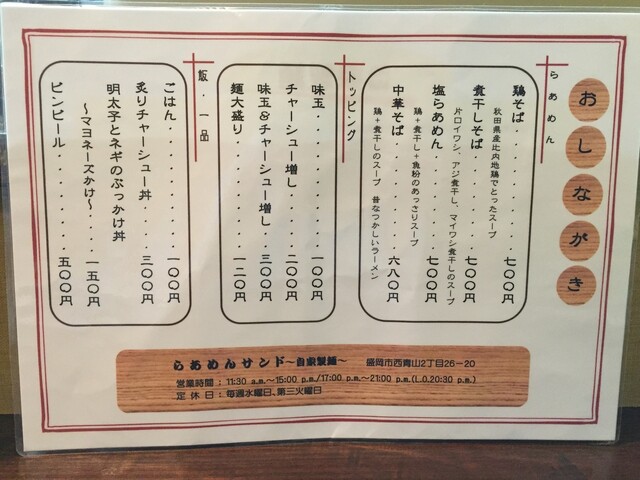 おしながき
らぁめん
鶏そば.........七〇〇円
秋田県産比内地鶏でとったスープ
煮干しそば.......七〇〇円
片口イワシ、アジ煮干し、マイワシ煮干しのスープ
塩らぁめん.......七〇〇円
鶏+煮干し+魚粉のあっさりスープ
中華そば........六八〇円
鶏+煮干しのスープ 昔なつかしいラーメン
トッピング
味玉..........一〇〇円
チャーシュー増し.....二〇〇円
味玉&チャーシュー増し...三〇〇円
麺大盛り........一二〇円
飯・一品
ごはん.........一〇〇円
炙りチャーシュー丼....三〇〇円
明太子とネギのぶっかけ丼
〜マヨネーズかけ〜....一五〇円
ビンビール.......五〇〇円
らぁめんサンド〜自家製麺〜 盛岡市西青山2丁目26-20
営業時間:11:30 a.m.〜15:00 p.m./17:00 p.m.〜21:00 p.m.(L.O.20:30 p.m.)
定休日:毎週水曜日、第三火曜日